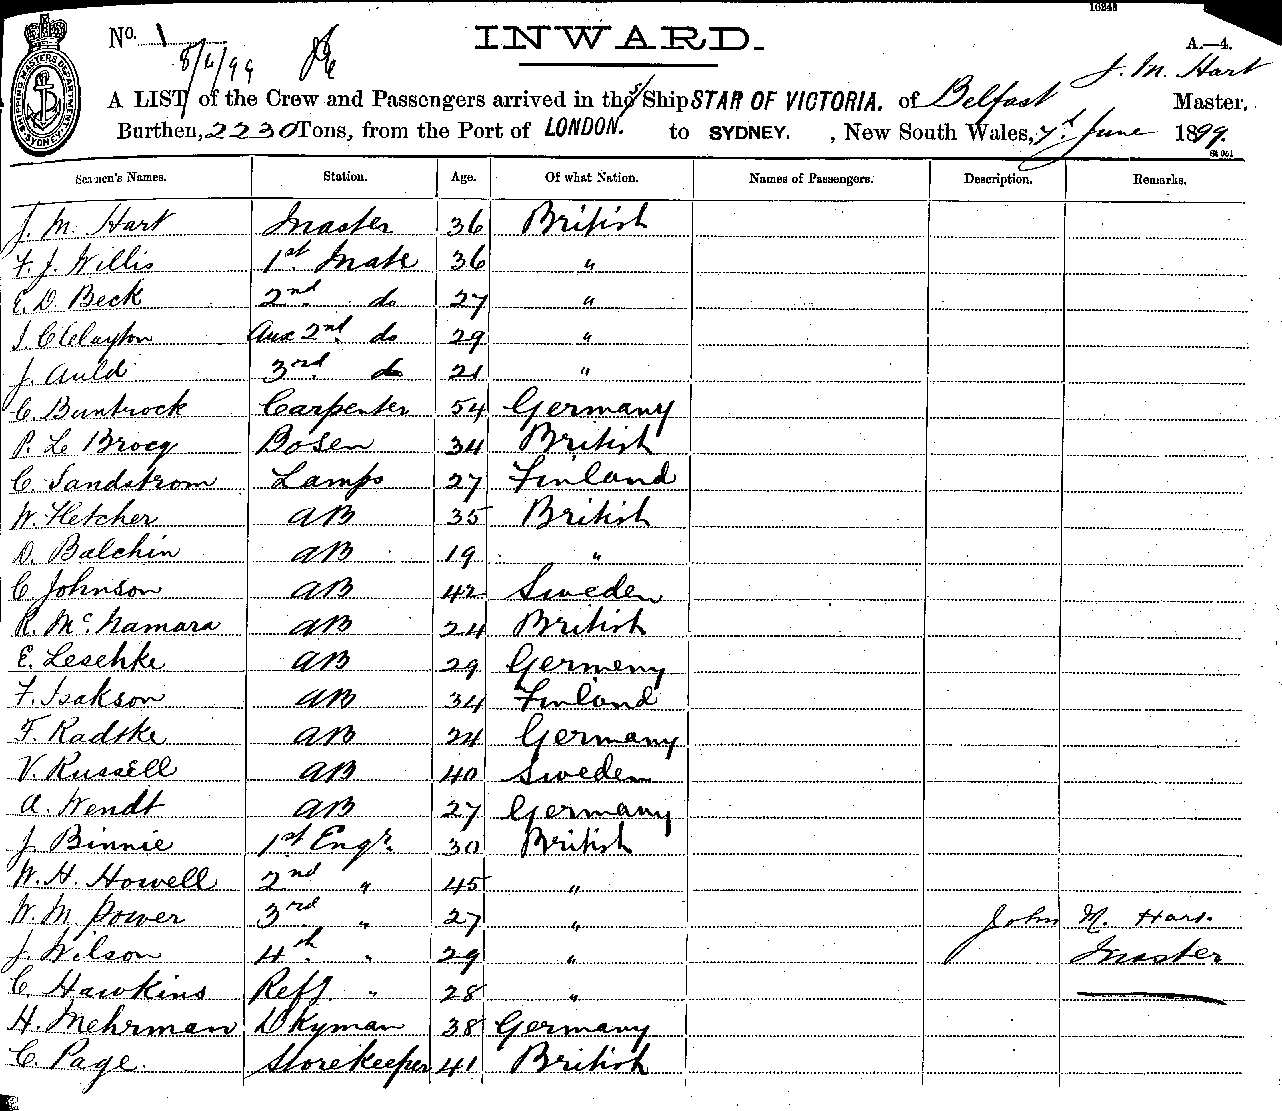 16248
No. 1
INWARD.
A.—4.
8/6/99
J. M. Hart
A LIST of the Crew and Passengers arrived in the S/Ship STAR OF VICTORIA. of Belfast Master,
Burthen, 2230 Tons, from the Port of LONDON. to SYDNEY. , New South Wales, 7th June 1899.
Seamen's Names. Station. Age. Of what Nation. Names of Passengers. Description. Remarks.
J. M. Hart Master 36 British
F. J. Willis 1st Mate 36 "
E. D. Beck 2nd do 27 "
J. C Clayton Aux 2nd do 29 "
J. Auld 3rd do 21 "
C. Buntrock Carpenter 54 Germany
P. Le Brocq Bosen 34 British
C. Sandstrom Lamps 27 Finland
W. Fletcher AB 35 British
D. Balchin AB 19 "
C. Johnson AB 42 Sweden
R. McNamara AB 24 British
E. Leschke AB 29 Germeny
F. Isakson AB 34 Finland
F. Radtke AB 24 Germany
V. Russell AB 40 Sweden
A. Wendt AB 27 Germany
J. Binnie 1st Engr. 30 British
W. H. Howell 2nd " 45 "
W. M. Power 3rd " 27 " John M. Hart.
J. Wilson 4th " 29 " Master
C. Hawkins Refg. " 28 "
H. Mehrman Dkyman 38 Germany
C. Page. Storekeeper 41 British